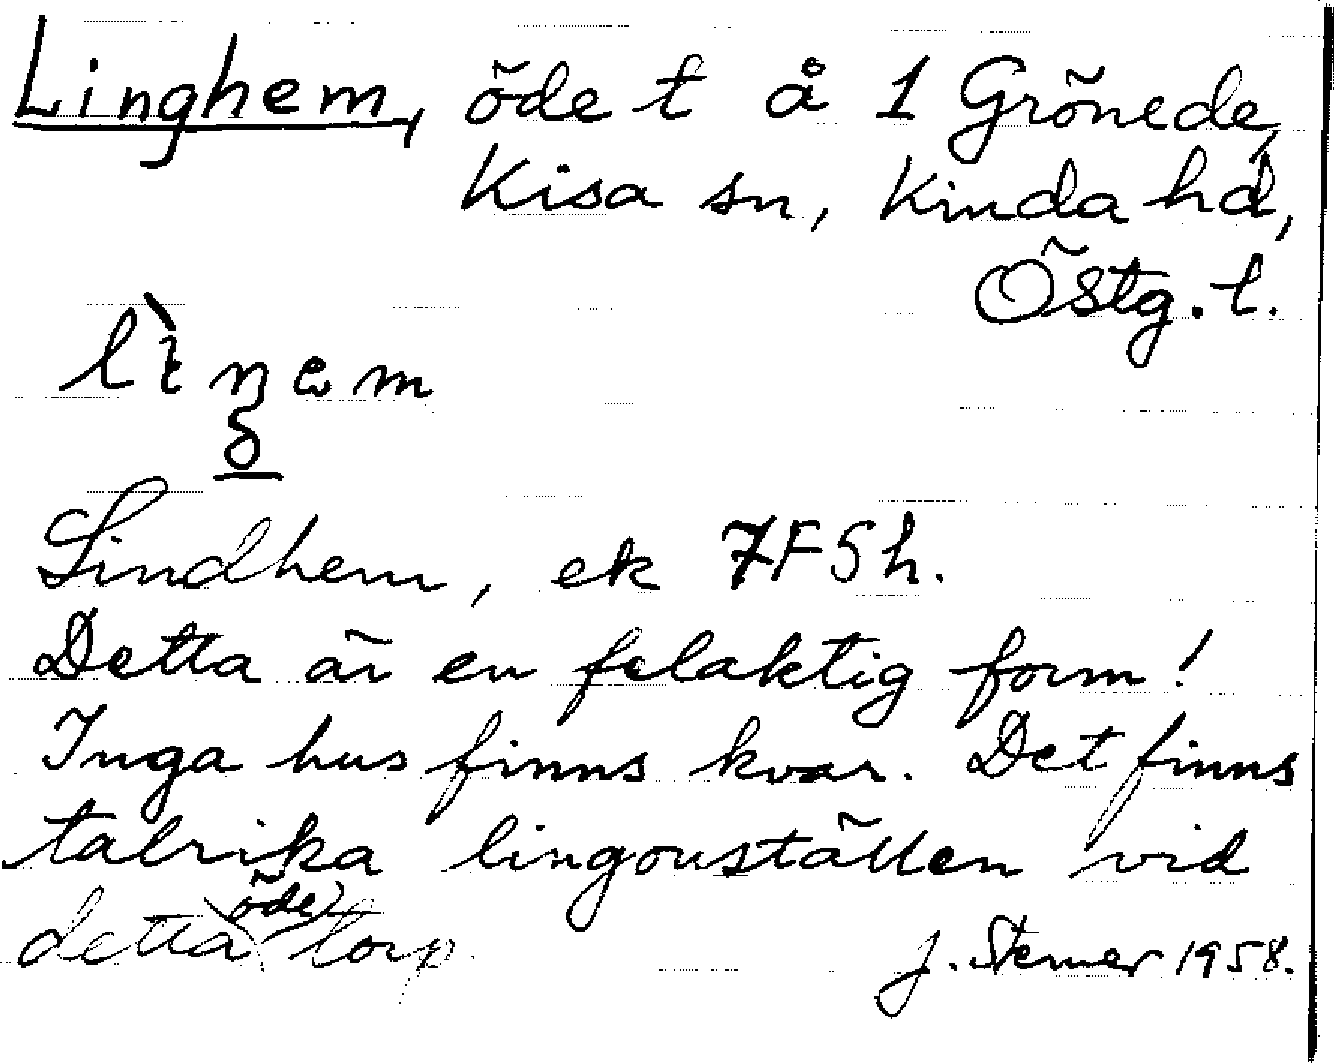 Linghem, öde t å 1 Grönede,
Kisa sn, Kinda hd,
Östg. l.
Lindhem, ek 7F5h.
Detta är en felaktig form!
Inga hus finns kvar. Det finns
talrika lingonställen vid
detta öde torp.
J. Sterner 1958.